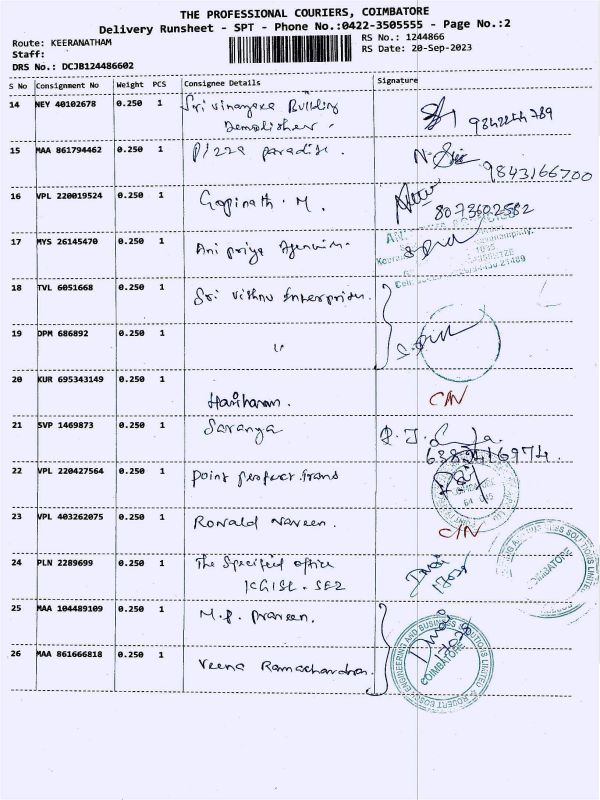 THE PROFESSIONAL COURIERS, COIMBATORE
Delivery Runsheet - SPT - Phone No.:0422-3505555 - Page No.:2
Route: KEERANATHAM
RS No.: 1244866
Staff:
RS Date: 20-Sep-2023
DRS No.: DCJB124486602
S No Consignment No Weight PCS Consignee Details Signature
14 NEY 40102678 0.250 1 Sri vinayaka Building
Demolisher.
15 MAA 861794462 0.250 1 Pizza paradise.
9843166700
16 VPL 220019524 0.250 1 Gopinath. M.
8073602582
17 MYS 26145470 0.250 1 Ani priya Agencies.
18 TVL 6051668 0.250 1 Sri Vishnu Enterprises.
19 DPM 686892 0.250 1 "
20 KUR 695343149 0.250 1
Hariharan. C/N
21 SVP 1469873 0.250 1 Saranya
22 VPL 220427564 0.250 1 point perfect trans
23 VPL 403262075 0.250 1 Ronald Naveen. C/N
24 PLN 2289699 0.250 1 The Specified office
KGISL. SEZ
25 MAA 104489109 0.250 1 M.P. Praveen.
26 MAA 861666818 0.250 1 Veena Ramachandran.
ENGINEERING AND BUSINESS SOLUTIONS LIMITED
COIMBATORE